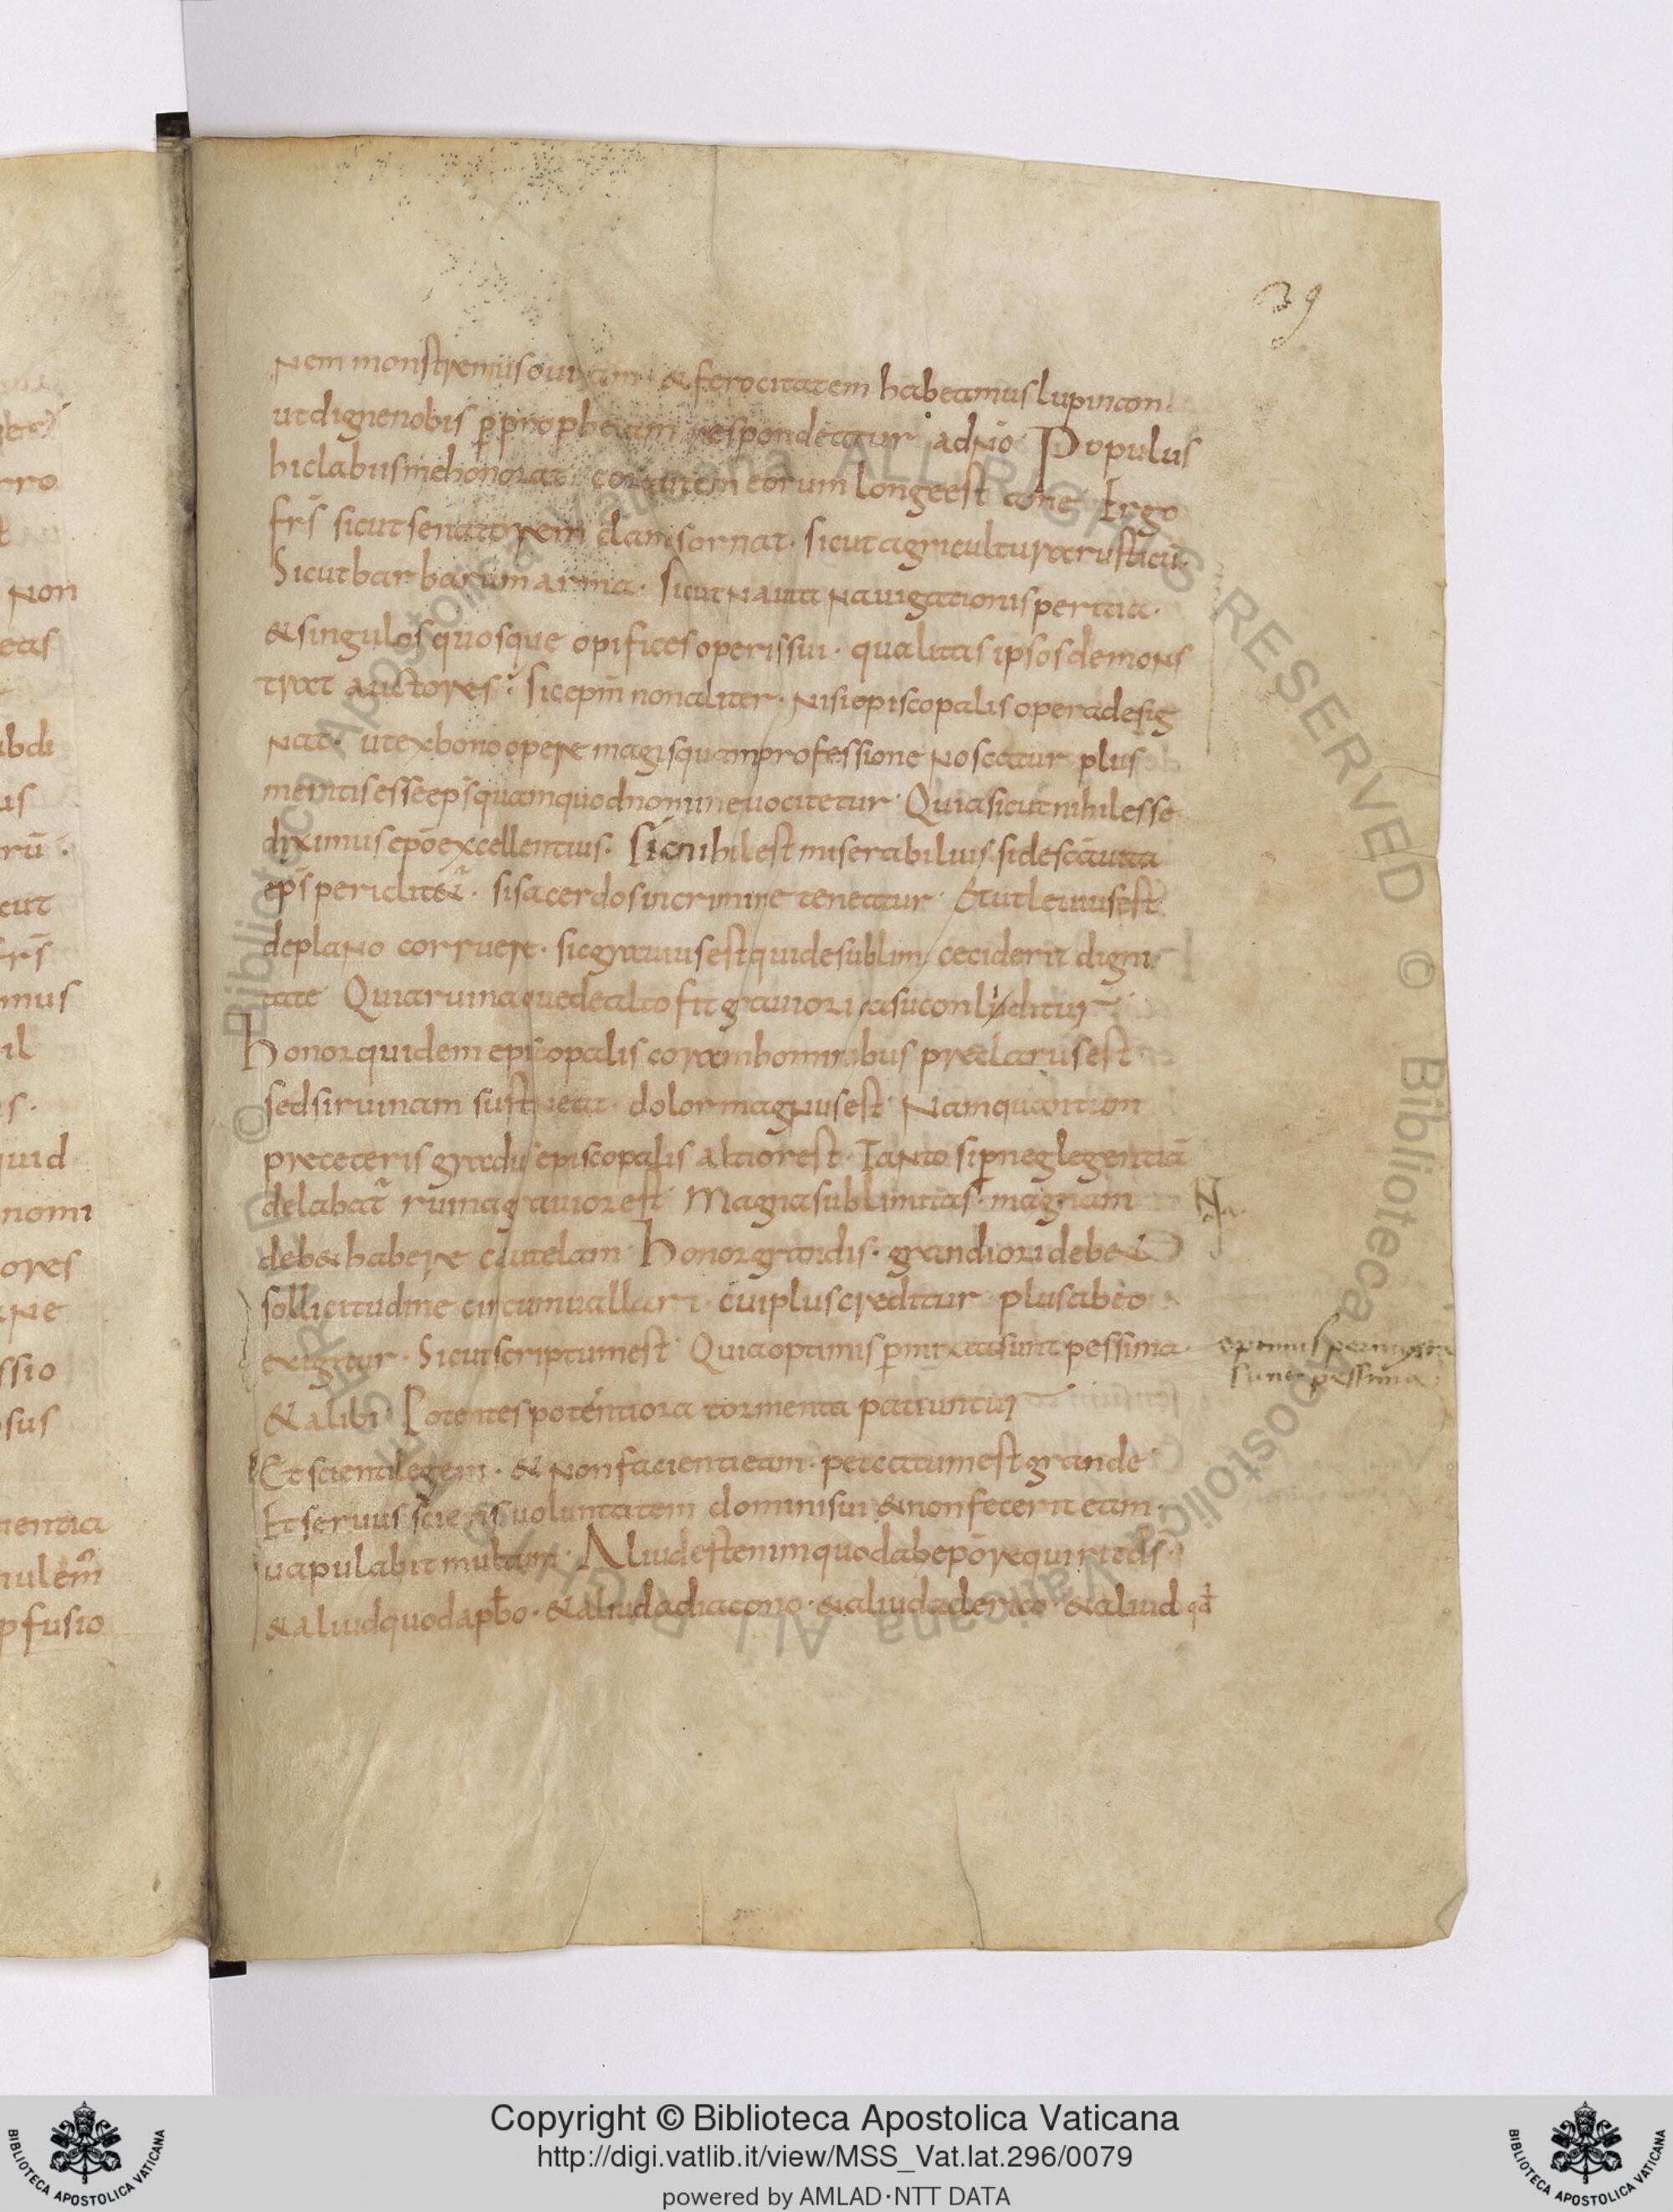 39
nem monstremus ouinam · & ferocitatem habeamus lupinam ·
ut digne nobis p̱ prophetam respondeatur a dn̄o · Populus
hic labiis me honorat · cor autem eorum longe est a me · Ergo
fr̄s sicut senatorem clamis ornat · sicut agricultura rusticū ·
Sicut barbarum arma · sicut nauta nauigationis peritia ·
& singulos quosque opifices operis sui · qualitas ipsos demons
trat auctores · sic ep̄m non aliter · nisi episcopalis opera desig
nat · ut ex bono opere magis quam professione noscatur plus
meritis esse ep̄s quam quod nomine uocitetur · Quia sicut nihil esse
diximus ep̄o excellentius · sic nihil est miserabilius si de scā uita
ep̄s periclitet̄ · si sacerdos in crimine teneatur · Et ut leuius est
de plano corruere · sic grauius est qui de sublimi ceciderit digni
tate · Quia ruina que de alto fit grauiori casu conliditur
Honor quidem episcopalis coram hominibus preclarus est
sed si ruinam sustineat · dolor magnus est · Nam quantum
pre ceteris gradus episcopalis altior est · Tanto si p̱ neglegentiā
delabat̄ ruina grauior est · Magna sublimitas · magnam
deb& habere cautelam · Honor grandis · grandiori deb&
sollicitudine circumuallari · cui plus creditur plus ab eo
exigitur · Sicut scriptum est · Quia optimis p̱mixta sunt pessima ·
optimis permixta
sunt pessima
& alibi · Potentes potentiora tormenta patiuntur
Et scienti legem · & non facienti eam · peccatum est grande
Et seruus sciens uoluntatem domini sui & non fecerit eam ·
uapulabit multum · Aliud est enim quod ab ep̄o requirit d̄s ·
& aliud quod a pb̄o · & aliud a diacono · & aliud a clerico · & aliud qđ
Copyright © Biblioteca Apostolica Vaticana
http://digi.vatlib.it/view/MSS_Vat.lat.296/0079
powered by AMLAD·NTT DATA
BIBLIOTECA APOSTOLICA VATICANA
BIBLIOTECA APOSTOLICA VATICANA